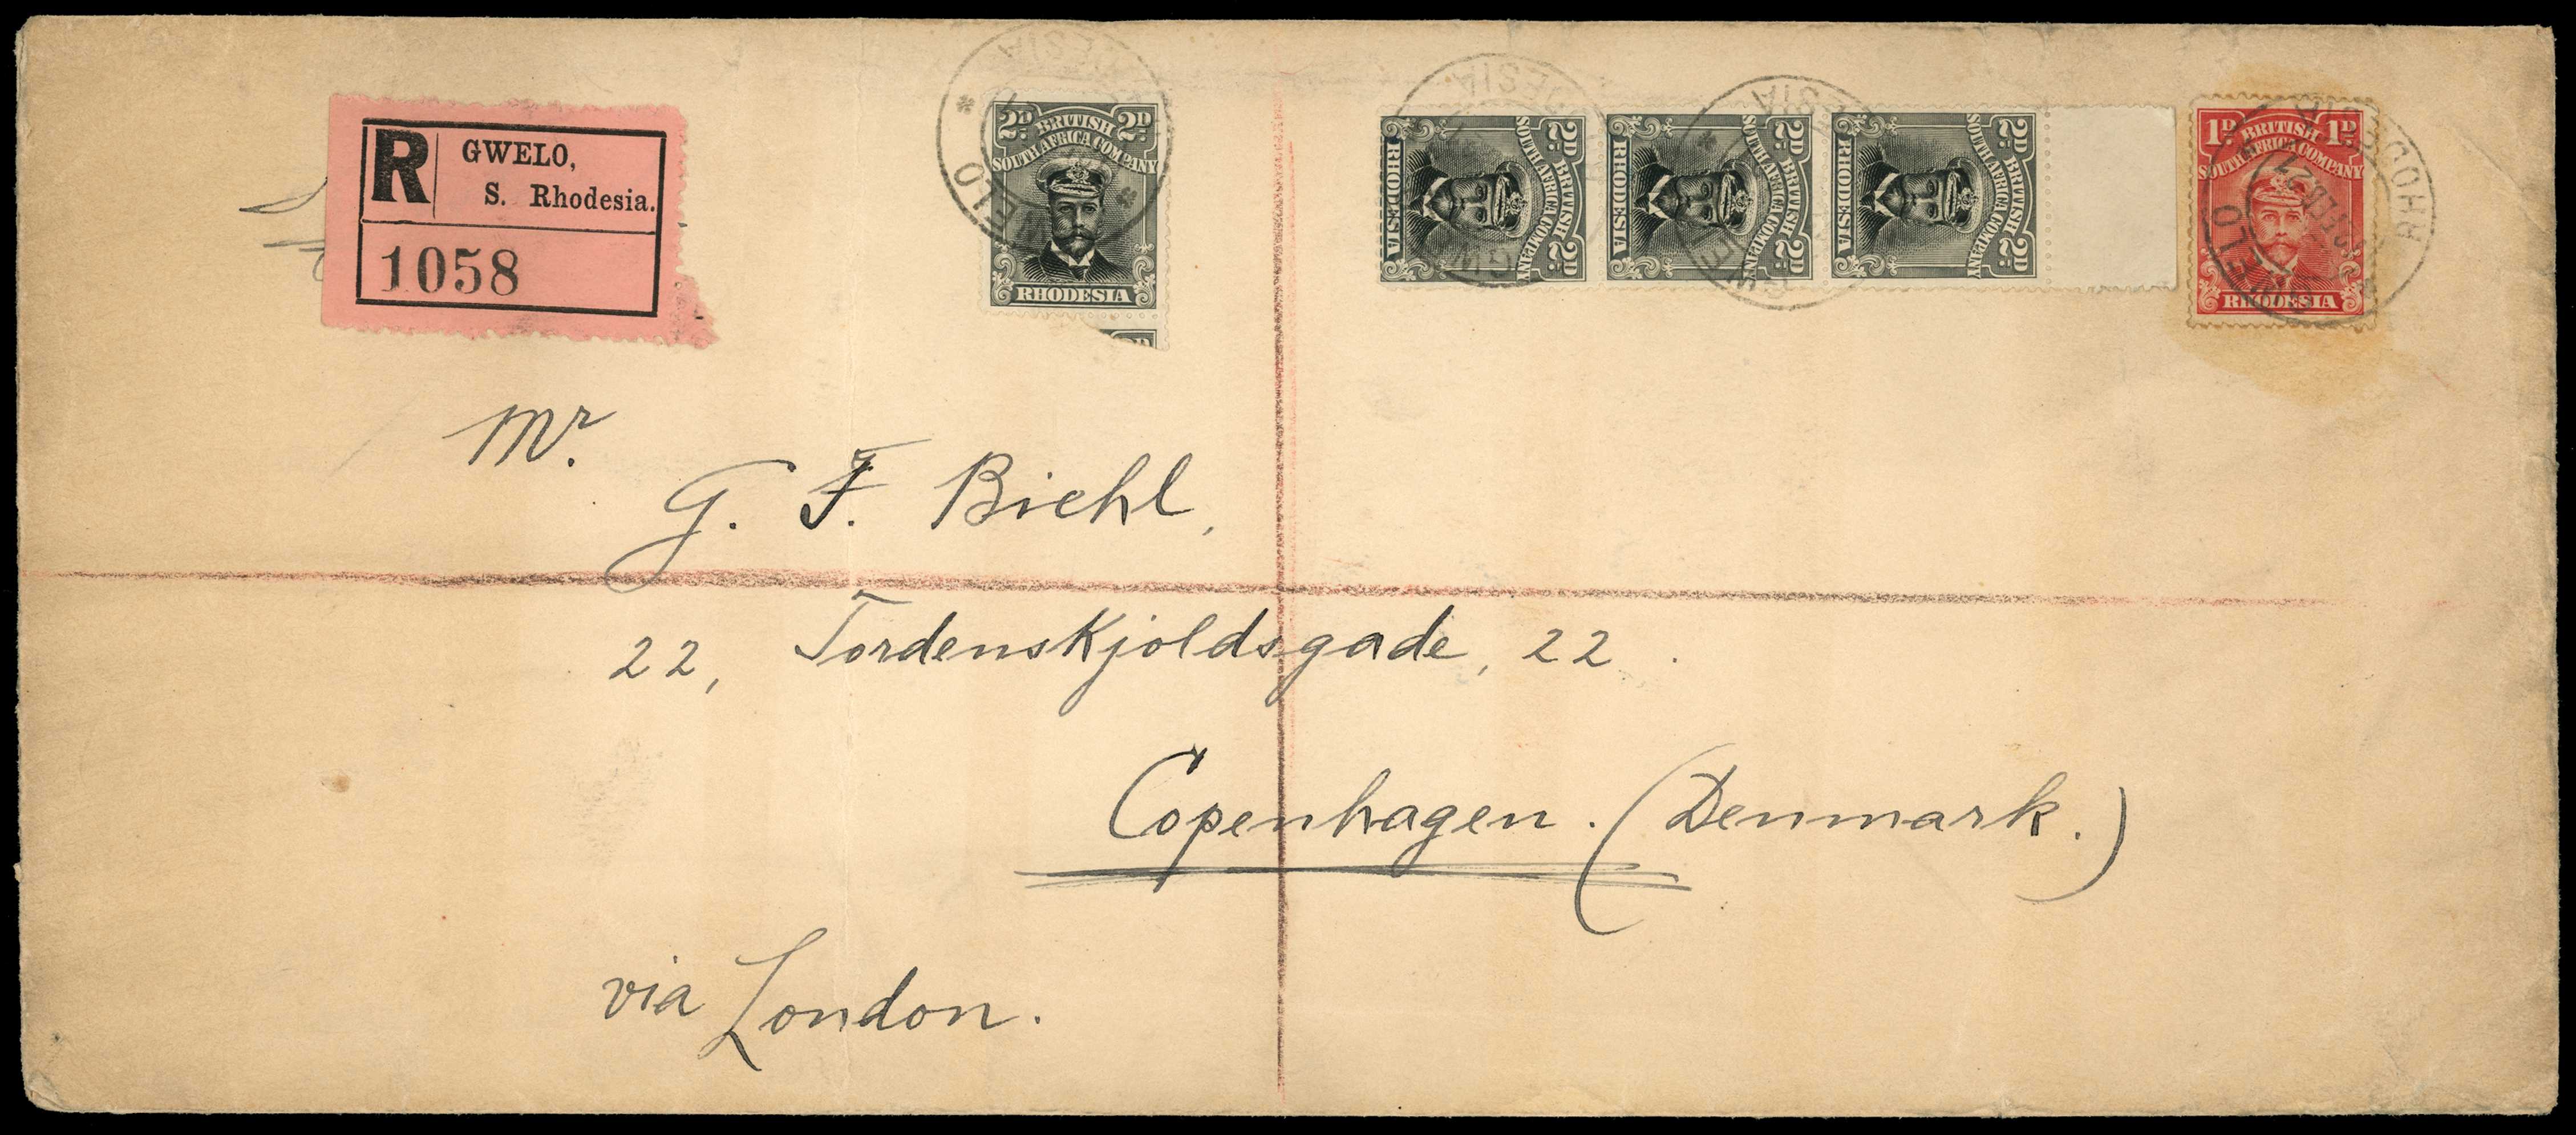 R GWELO,
S. Rhodesia.
1058
2D 2D
BRITISH
SOUTH AFRICA COMPANY
RHODESIA
GWELO
2D 2D
BRITISH
SOUTH AFRICA COMPANY
RHODESIA
2D 2D
BRITISH
SOUTH AFRICA COMPANY
RHODESIA
2D 2D
BRITISH
SOUTH AFRICA COMPANY
RHODESIA
1D 1D
BRITISH
SOUTH AFRICA COMPANY
RHODESIA
Mr.
G. F. Biehl,
22, Tordenskjoldsgade, 22.
Copenhagen. (Denmark.)
via London.